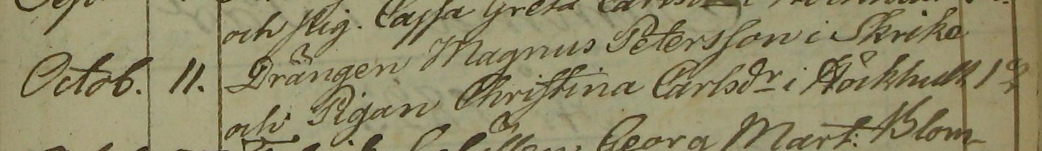 och Pig. Cajsa Greta Carlsdr i
Octob. 11. Drängen Magnus Petersson i Skrike
och Pigan Christina Carlsdr i Höckhult
Georg Mart: Blom-